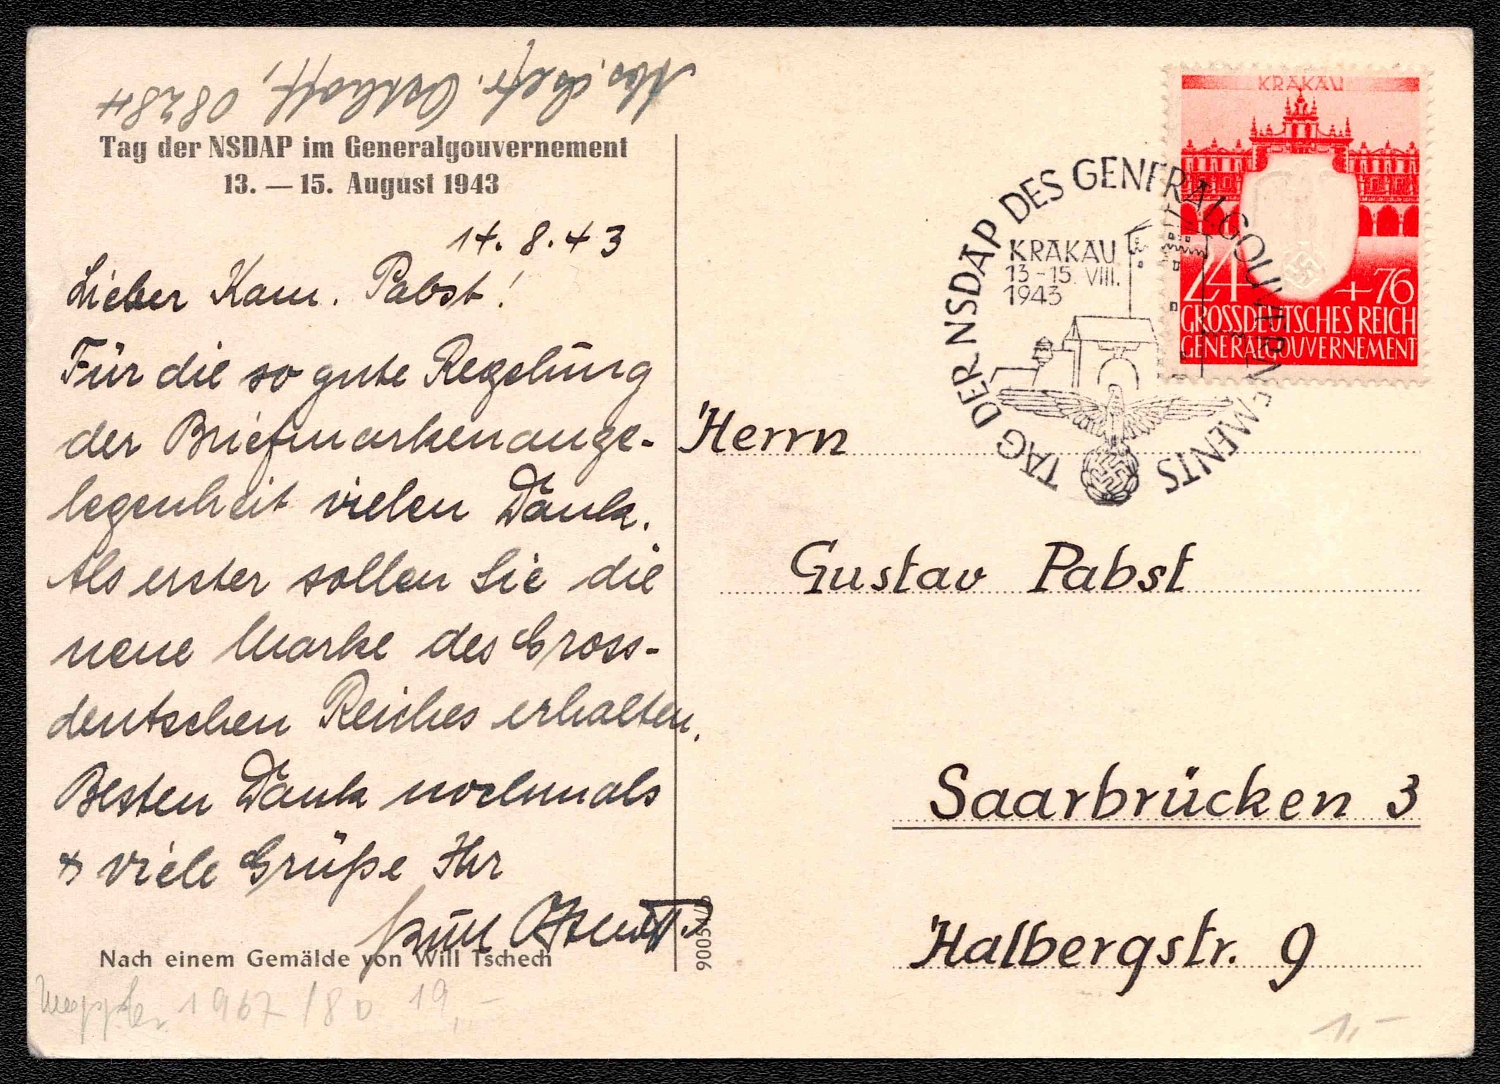 08284
Tag der NSDAP im Generalgouvernement
13. — 15. August 1943
14. 8. 43
Lieber Kam. Pabst!
Für die so gute Regelung
der Briefmarkenange-
legenheit vielen Dank.
Als erster sollen Sie die
neue Marke des Gross-
deutschen Reiches erhalten.
Besten Dank nochmals
& viele Grüße Ihr
Nach einem Gemälde von Will Tschech
1967/80 19,-
KRAKAU
24+76
GROSSDEUTSCHES REICH
GENERALGOUVERNEMENT
TAG DER NSDAP DES GENERALGOUVERNEMENTS
KRAKAU
13-15. VIII.
1943
Herrn
Gustav Pabst
Saarbrücken 3
Halbergstr. 9
1,-